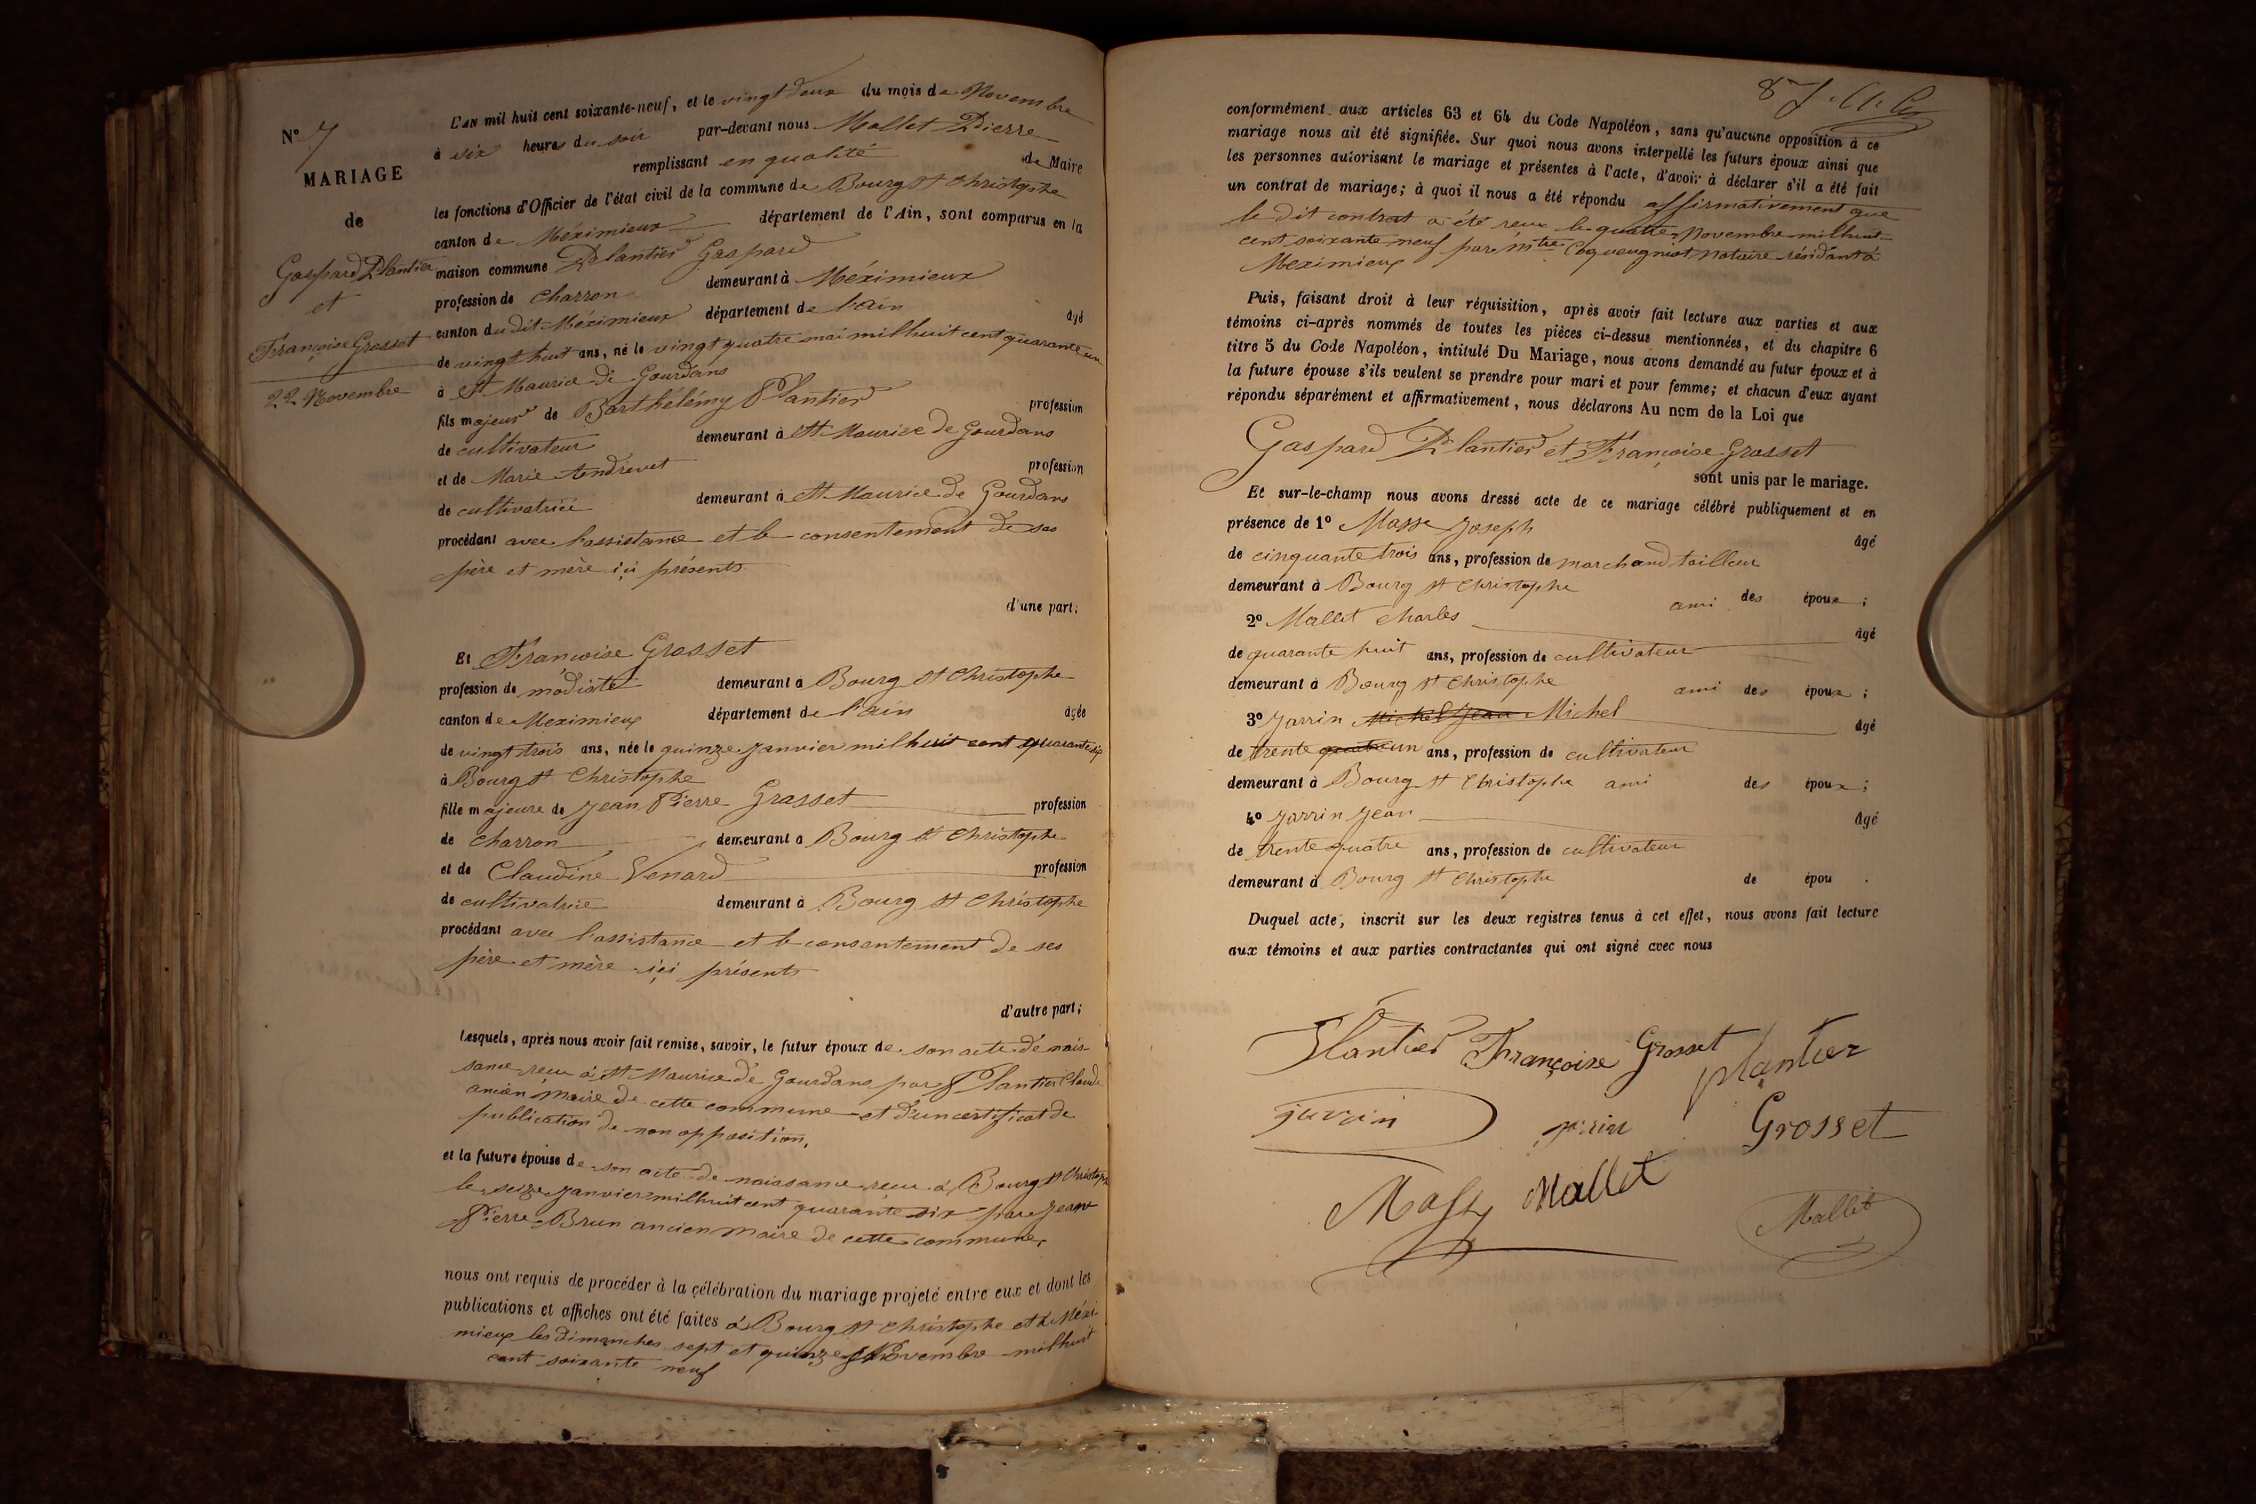 N° 7
MARIAGE
de
Gaspard Plantier
et
Françoise Grosset
22 Novembre
L'AN mil huit cent soixante-neuf, et le vingt deux du mois de Novembre
à six heures du soir par-devant nous Mallet Pierre
remplissant en qualité de Maire
les fonctions d'Officier de l'état civil de la commune de Bourg St Christophe
canton de Méximieux département de l'Ain, sont comparus en la
maison commune Plantier Gaspard
profession de Charron demeurant à Méximieux
canton du dit Méximieux département de l'ain âgé
de vingt huit ans, né le vingt quatre mai mil huit cent quarante un
à St Maurice de Gourdans
fils majeur de Barthélémy Plantier profession
de cultivateur demeurant à St Maurice de Gourdans
et de Marie Andrevet profession
de cultivatrice demeurant à St Maurice de Gourdans
procédant avec l'assistance et le consentement de ses
père et mère ici présents
d'une part;
Et Françoise Grosset
profession de modiste demeurant à Bourg St Christophe
canton de Meximieux département de l'ain âgée
de vingt trois ans, née le quinze Janvier mil huit cent quarante six
à Bourg St Christophe
fille majeure de Jean Pierre Grosset profession
de charron demeurant à Bourg St Christophe
et de Claudine Venard profession
de cultivatrice demeurant à Bourg St Christophe
procédant avec l'assistance et le consentement de ses
père et mère ici présents
d'autre part;
Lesquels, après nous avoir fait remise, savoir, le futur époux de son acte de nais-
sance reçu à St Maurice de Gourdans par Plantier Claude
ancien Maire de cette commune et d'un certificat de
publication de non opposition,
et la future épouse de son acte de naissance reçu à Bourg St Christophe
le seize Janvier mil huit cent quarante six par Jean
Pierre Brun ancien Maire de cette commune,
nous ont requis de procéder à la célébration du mariage projeté entre eux et dont les
publications et affiches ont été faites à Bourg St Christophe et à Méxi-
mieux les dimanches sept et quinze Novembre mil huit
cent soixante neuf
87
conformément aux articles 63 et 64 du Code Napoléon, sans qu'aucune opposition à ce
mariage nous ait été signifiée. Sur quoi nous avons interpellé les futurs époux ainsi que
les personnes autorisant le mariage et présentes à l'acte, d'avoir à déclarer s'il a été fait
un contrat de mariage; à quoi il nous a été répondu affirmativement que
le dit contrat a été reçu le quatre Novembre mil huit
cent soixante neuf par mtre Coqueugniot notaire résidant à
Meximieux
Puis, faisant droit à leur réquisition, après avoir fait lecture aux parties et aux
témoins ci-après nommés de toutes les pièces ci-dessus mentionnées, et du chapitre 6
titre 5 du Code Napoléon, intitulé Du Mariage, nous avons demandé au futur époux et à
la future épouse s'ils veulent se prendre pour mari et pour femme; et chacun d'eux ayant
répondu séparément et affirmativement, nous déclarons Au nom de la Loi que
Gaspard Plantier et Françoise Grosset
sont unis par le mariage.
Et sur-le-champ nous avons dressé acte de ce mariage célébré publiquement et en
présence de 1° Masse Joseph âgé
de cinquante trois ans, profession de marchand tailleur
demeurant à Bourg St Christophe ami des époux;
2° Mallet Charles âgé
de quarante huit ans, profession de cultivateur
demeurant à Bourg St Christophe ami des époux;
3° Jarrin Michel Jean Michel âgé
de trente quatre un ans, profession de cultivateur
demeurant à Bourg St Christophe ami des époux;
4° Jarrin Jean âgé
de trente quatre ans, profession de cultivateur
demeurant à Bourg St Christophe de épou .
Duquel acte, inscrit sur les deux registres tenus à cet effet, nous avons fait lecture
aux témoins et aux parties contractantes qui ont signé avec nous
Plantier Françoise Grosset plantier
jarrin Grosset
Masse Mallet Mallet